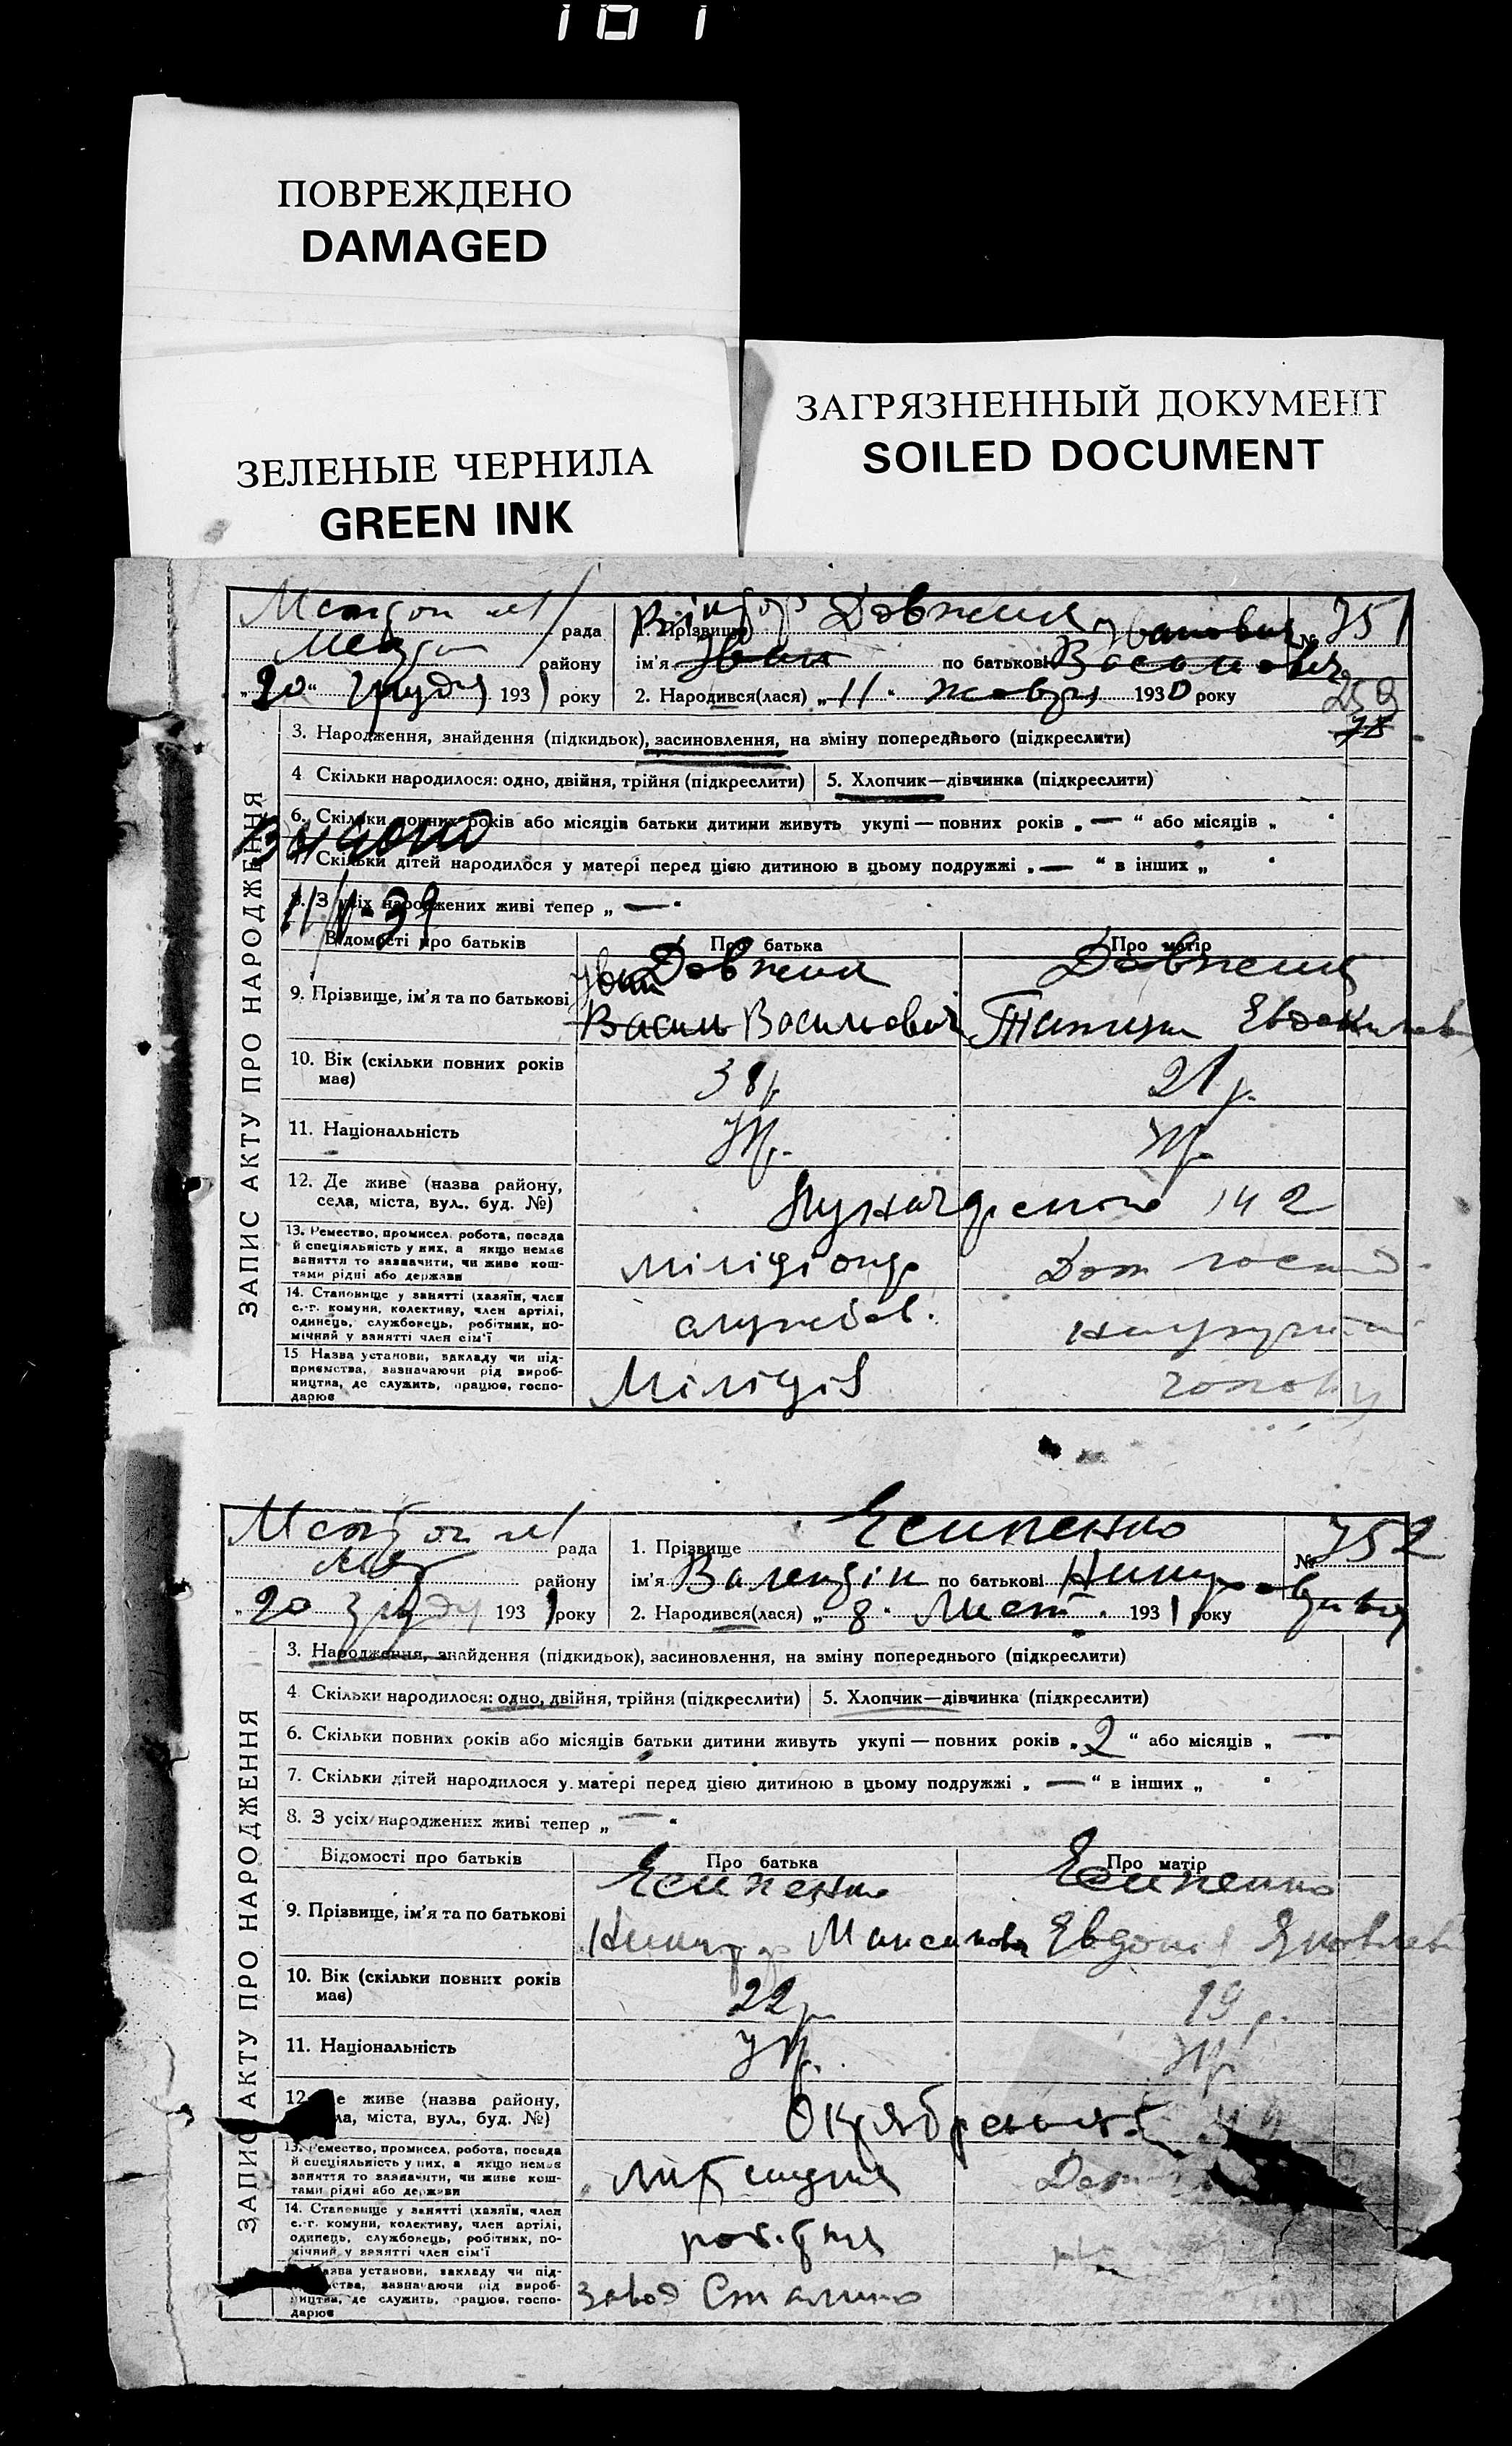 101
ПОВРЕЖДЕНО
DAMAGED
ЗЕЛЕНЫЕ ЧЕРНИЛА
GREEN INK
ЗАГРЯЗНЕННЫЙ ДОКУМЕНТ
SOILED DOCUMENT
ЗАПИС АКТУ ПРО НАРОДЖЕННЯ
рада
району
„20“ грудня 1931 року
1. Прізвище Довженя
Віктор Іванович
ім'я Иван по батькові Васильович
№ 751
2. Народився(лася) „11“ жовтня 1930 року
259
3. Народження, знайдення (підкидьок), засиновлення, на зміну попереднього (підкреслити)
4 Скільки народилося: одно, двійня, трійня (підкреслити) 5. Хлопчик—дівчинка (підкреслити)
6. Скільки повних років або місяців батьки дитини живуть укупі — повних років „—“ або місяців „
7. Скільки дітей народилося у матері перед цією дитиною в цьому подружжі „—“ в інших „
8. З усіх народжених живі тепер „—“
Відомості про батьків Про батька Про матір
Довженя Довженя
9. Прізвище, ім'я та по батькові Иван Васильович
10. Вік (скільки повних років має) 38 р. 21 р.
11. Національність Укр. Укр.
12. Де живе (назва району, села, міста, вул., буд. №) 142
13. Ремество, промисел, робота, посада й спеціяльність у них, а якщо немає заняття то зазначити, чи живе коштами рідні або держави Міліціонер Дом госпо
14. Становище у занятті (хазяїн, член с.-г. комуни, колективу, член артілі, одинець, службовець, робітник, помічний у занятті член сім'ї службов.
15 Назва установи, закладу чи підприємства, зазначаючи рід виробництва, де служить, працює, господарює Міліція
ЗАПИС АКТУ ПРО НАРОДЖЕННЯ
рада
району
„20 1931 року
1. Прізвище Есипенко
ім'я Валентін по батькові
№ 752
2. Народився(лася) „8“ Лист. 1931 року
3. Народження, знайдення (підкидьок), засиновлення, на зміну попереднього (підкреслити)
4 Скільки народилося: одно, двійня, трійня (підкреслити) 5. Хлопчик—дівчинка (підкреслити)
6. Скільки повних років або місяців батьки дитини живуть укупі — повних років „2“ або місяців „—
7. Скільки дітей народилося у матері перед цією дитиною в цьому подружжі „—“ в інших „
8. З усіх народжених живі тепер „—“
Відомості про батьків Про батька Про матір
Есипенко Есипенко
9. Прізвище, ім'я та по батькові Максимов Евдокія Яковлев
10. Вік (скільки повних років має) 22 р. 19 р.
11. Національність Укр. Укр.
12. Де живе (назва району, села, міста, вул., буд. №) Октябрська
13. Ремество, промисел, робота, посада й спеціяльність у них, а якщо немає заняття то зазначити, чи живе коштами рідні або держави
14. Становище у занятті (хазяїн, член с.-г. комуни, колективу, член артілі, одинець, службовець, робітник, помічний у занятті член сім'ї робітник
Назва установи, закладу чи підприємства, зазначаючи рід виробництва, де служить, працює, господарює завод Сталино